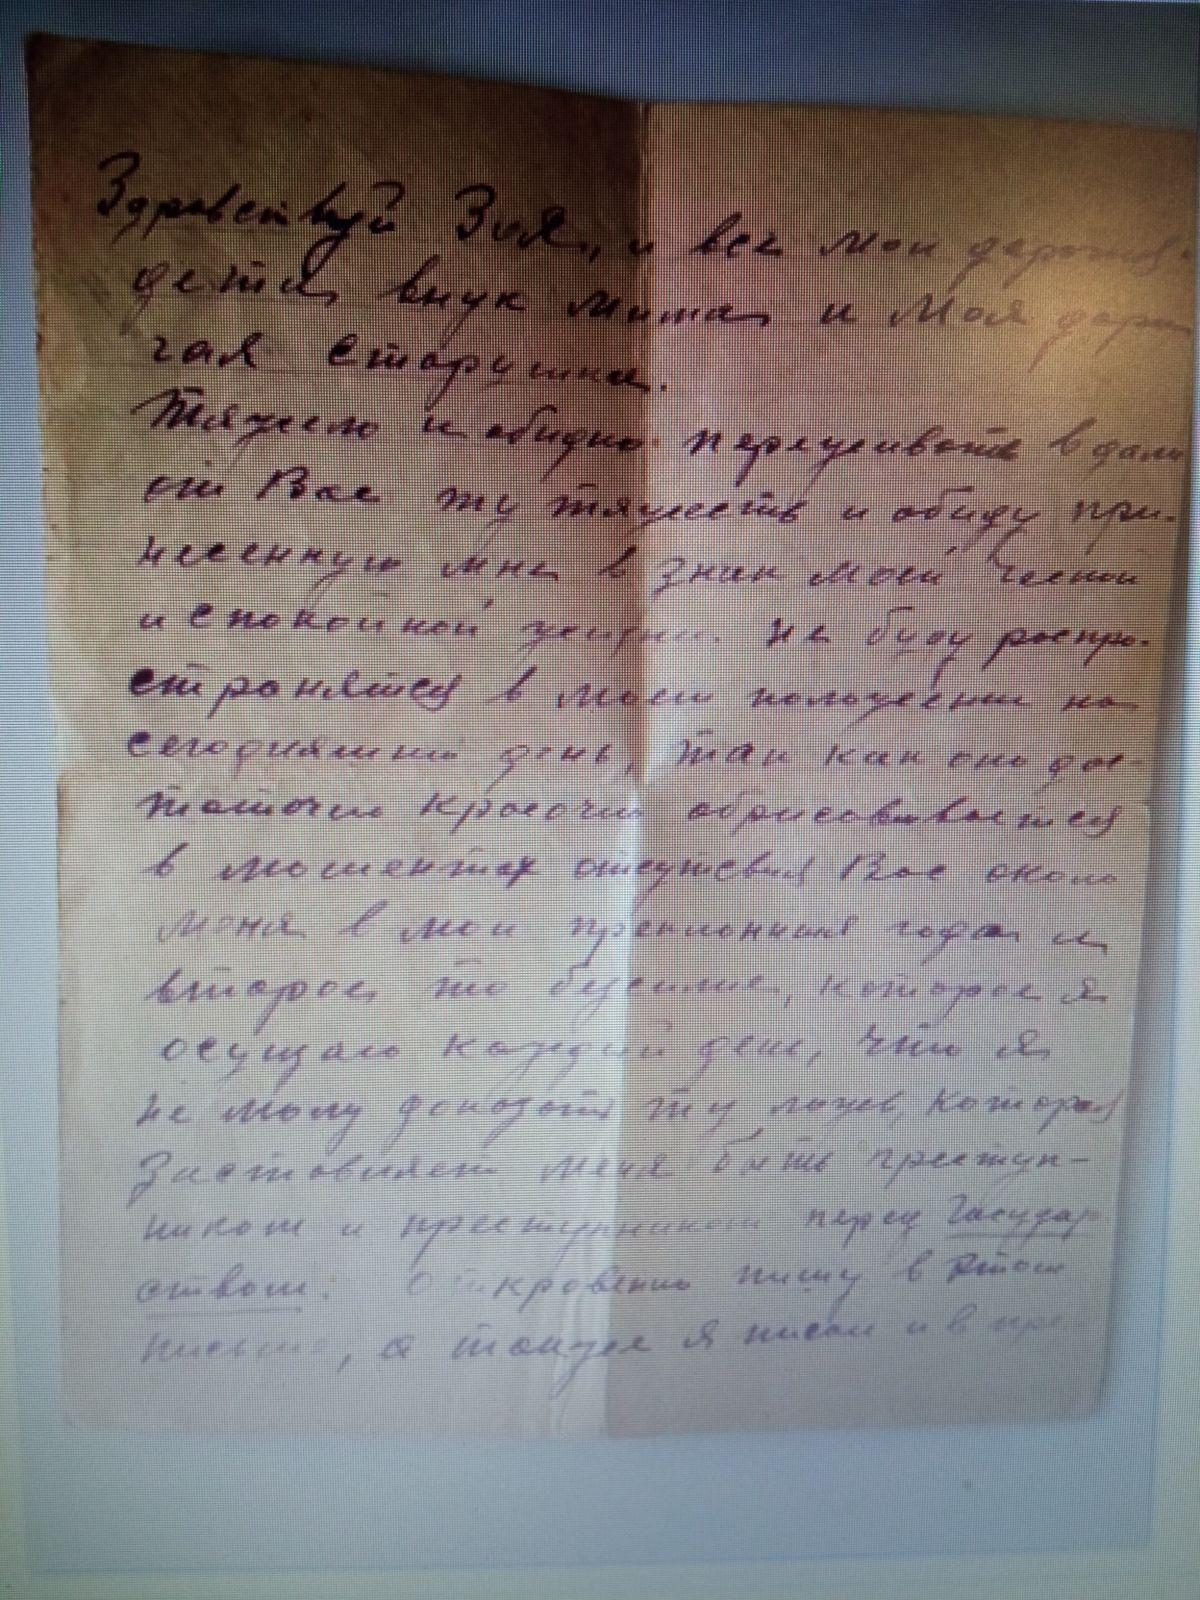 Здравствуй Зоя, и все мои дорогие
дети, внук Миша, и моя доро
гая старушка.
Тяжело и обидно переживать вдали
от Вас ту тяжесть и обиду при-
несенную мне в знак моей честной
и спокойной жизни. Не буду распро-
стронятся в моем положении на
сегодняшний день, так как оно дос-
таточно красочно обрисовывается
в моментах отсутствия Вас около
меня в мои преклонные года и
второе, то безсилие, которое я
осущаю каждый день, что я
не могу доказать ту ложь, которая
заставляет меня быть преступ-
ником и преступником перед Государ
ством. Откровенно пишу в этом
письме, а также я писал и в пре-